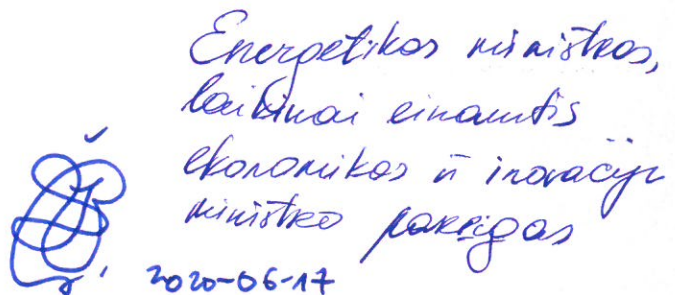 Energetikos ministras,
laikinai einantis
ekonomikos ir inovacijų
ministro pareigas
2020-06-17